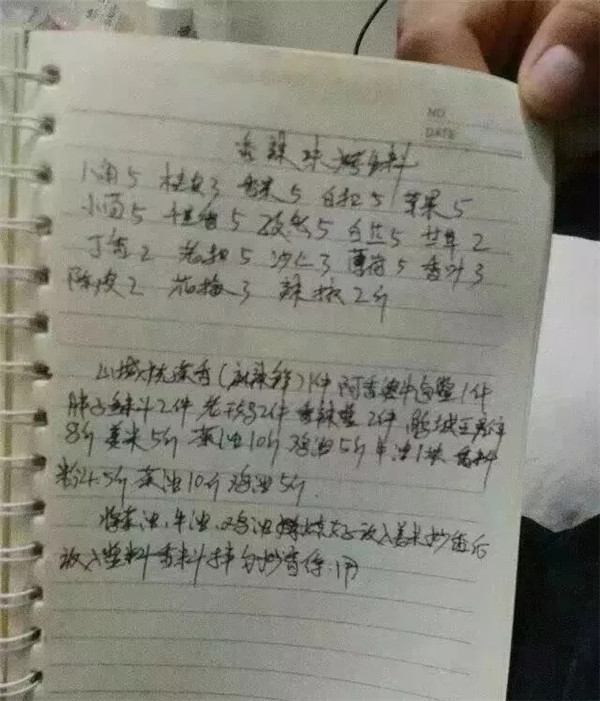 NO.
DATE
香辣味烤全料
八角5 桂皮3 香果5 白扣5 草果5
小茴5 千里香5 5 白芷5 甘草2
丁香2 老扣5 沙仁3 薄荷5 香叶3
陈皮2 花椒3 辣椒2斤
山城 (麻辣鲜)1件 阿香婆牛肉酱1件
胖子鱼料2件 老干妈2件 香辣酱2件
8斤 姜米5斤 菜油10斤 鸡油5斤 牛油1块 香料
粉4.5斤 菜油10斤 鸡油5斤.
将菜油、牛油、鸡油 放入姜米炒香后
放入酱料香料拌匀炒香待用